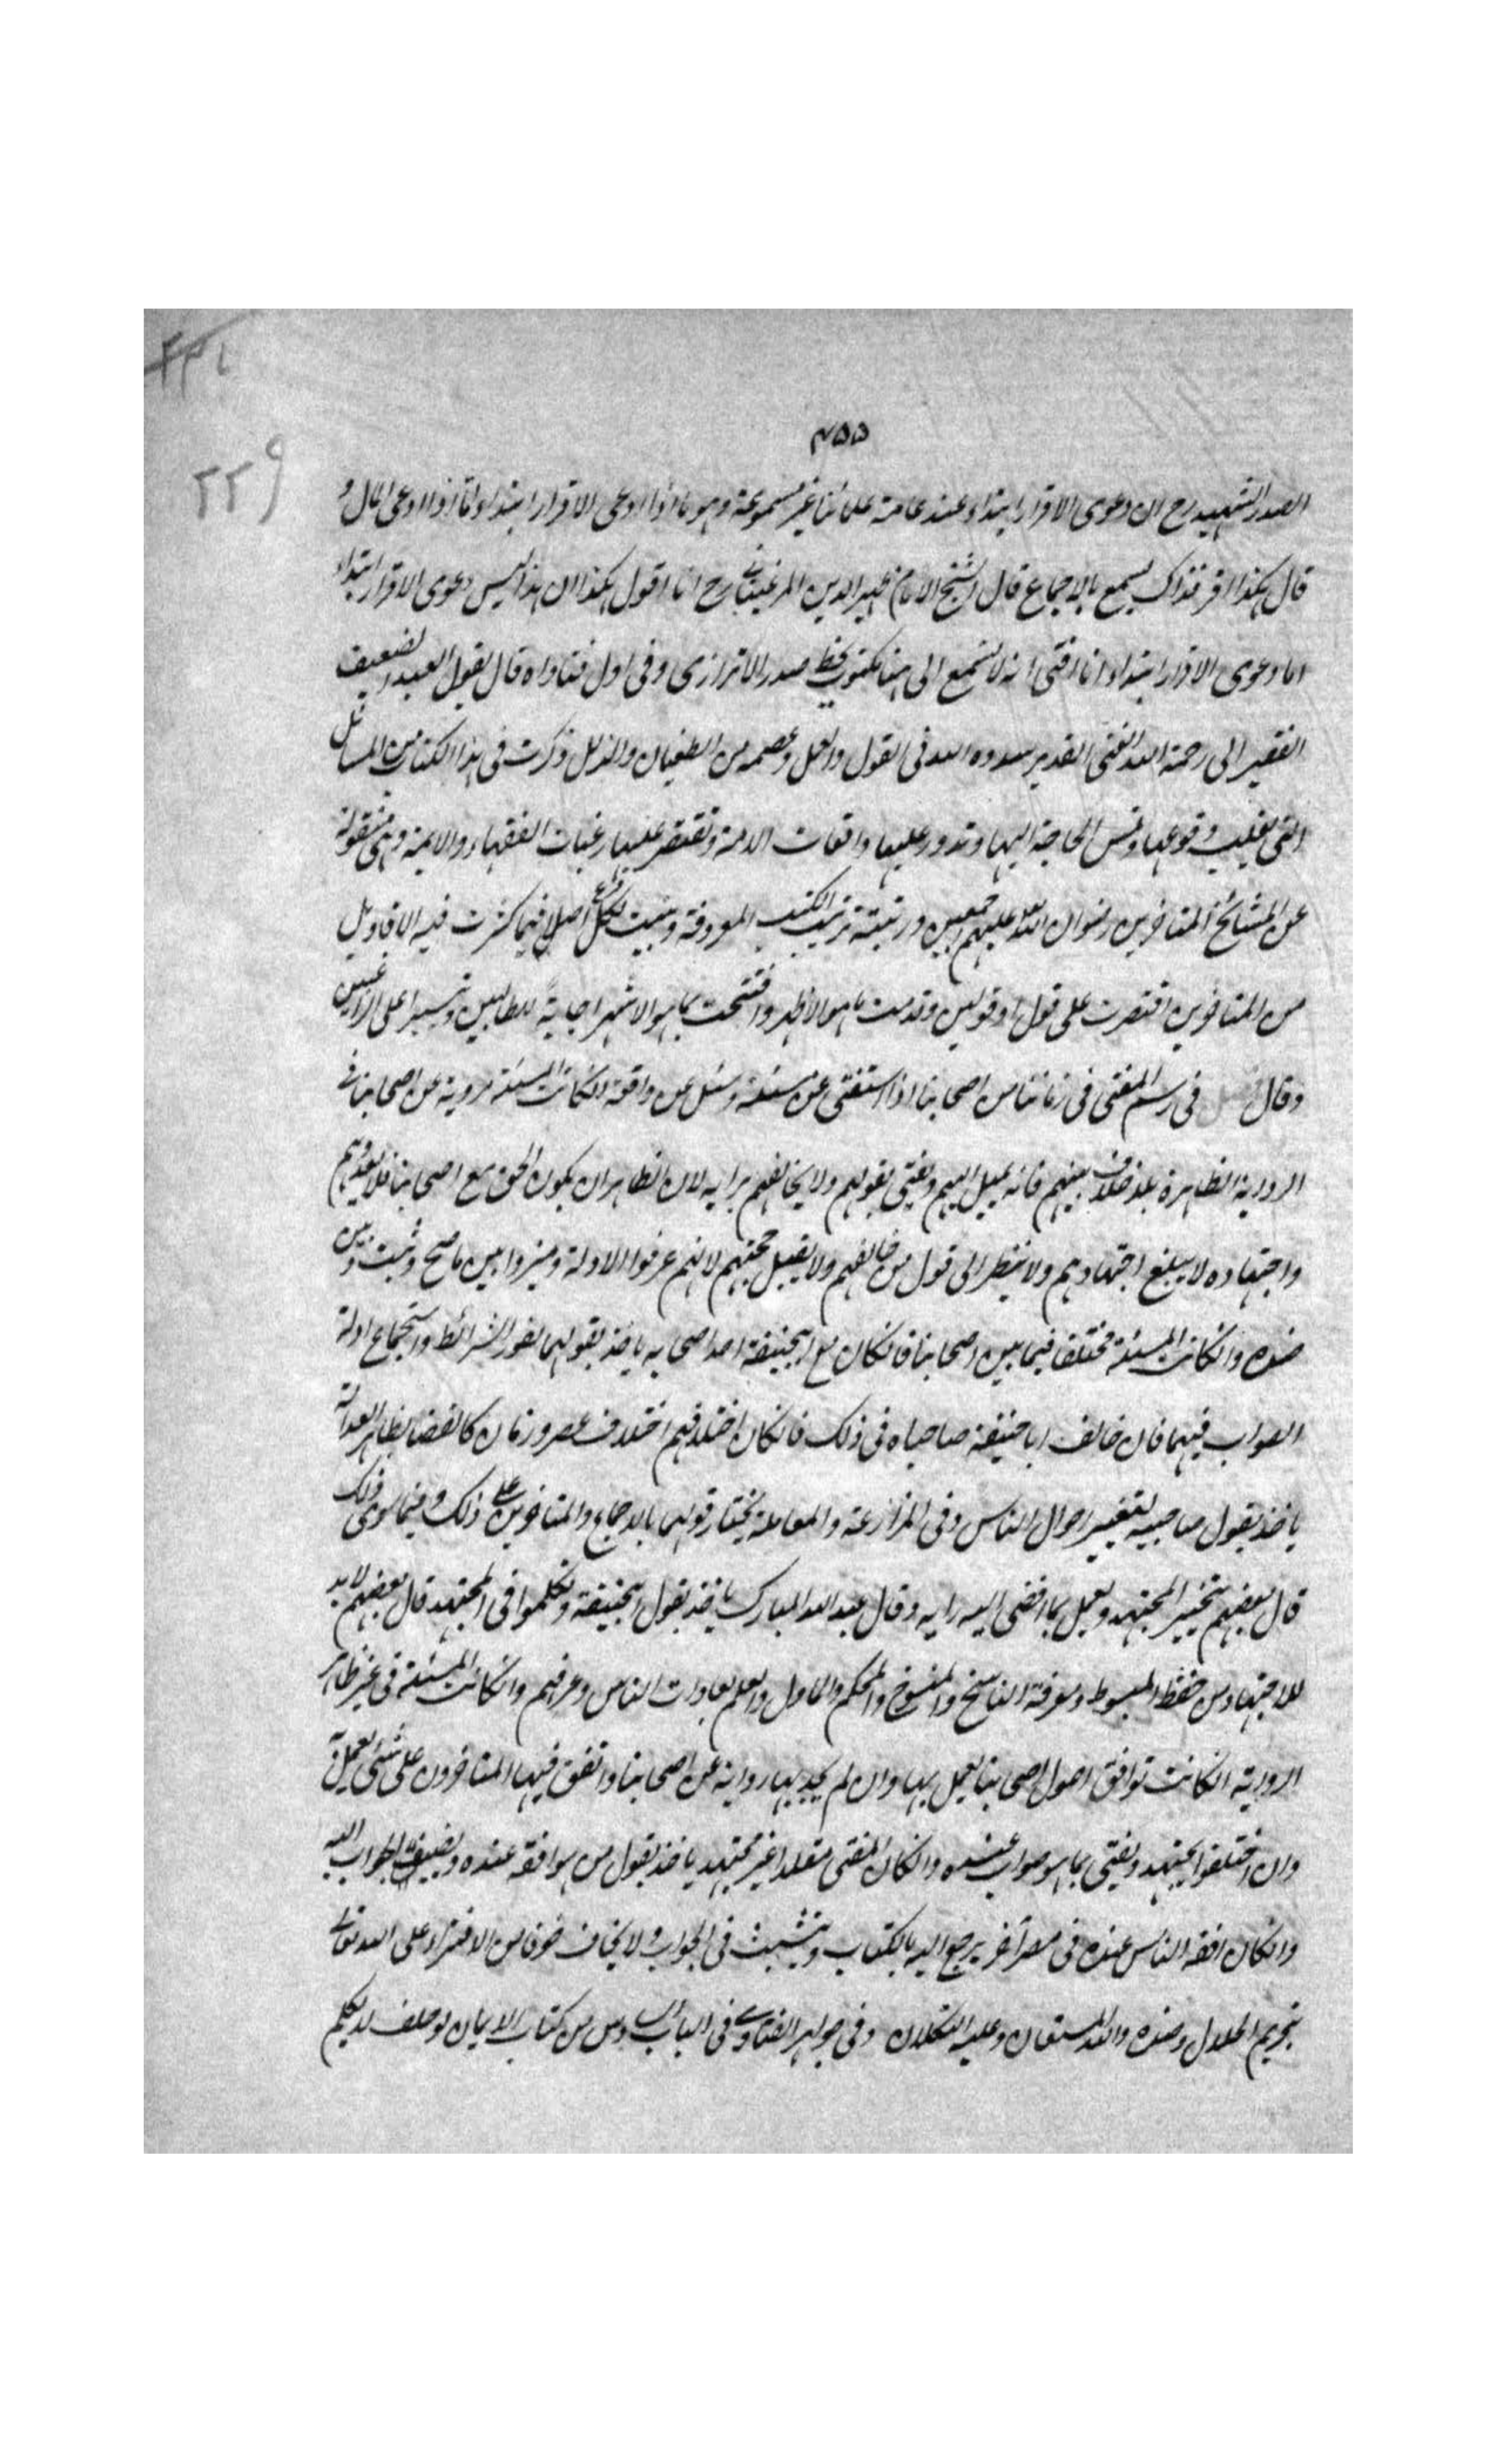 ٤٥٥
٢٢٩
الصدر الشهيد رح ان دعوى الاقرار ابتداء عند عامة علمائنا غير مسموعة وهو ما اذا ادعى الاقرار ابتداء واما اذا ادعى المال و
قال هكذا اقر فذاك يسمع بالاجماع قال الشيخ الامام ظهير الدين المرغيناني رح انا اقول هكذا ان هذا ليس دعوى الاقرار ابتداء
اما دعوى الاقرار ابتداء انا افتى انه لا تسمع الى هنا مكتوب بخط صدر الاترازى وفى اول فتاواه قال يقول العبد الضعيف
الفقير الى رحمة الله الغنى القدير سدده الله فى القول والعمل وعصمه من الطغيان والزلل ذكرت فى هذا الكتاب من المسائل
التى يغلب وقوعها وتمس الحاجة اليها وتدور عليها واقعات الامة وتقتصر عليها رغبات الفقهاء والائمة وهى منقولة
عن المشائخ المتاخرين رضوان الله عليهم اجمعين ورتبته ترتيب الكتب المعروفة وبينت لكل فرع اصلا فيما كثرت فيه الاقاويل
من المتاخرين اقتصرت على قول او قولين وقدمت ما هو الاظهر وافتتحت بما هو الاشهر اجابة للطالبين وتيسيرا على الراغبين
وقال فى رسم المفتى فى زماننا من اصحابنا اذا استفتى عن مسئلة وسئل عن واقعة انكانت المسئلة مروية عن اصحابنا فى
الرواية الظاهرة بلا خلاف بينهم فانه يميل اليهم ويفتى بقولهم ولا يخالفهم برايه لان الظاهر ان يكون الحق مع اصحابنا فلا يعدوهم
واجتهاده لا يبلغ اجتهادهم ولا ينظر الى قول من خالفهم ولا يقبل حجتهم لانهم عرفوا الادلة وميزوا بين ما صح وثبت وبين
ضده وانكانت المسئلة مختلفا فيها بين اصحابنا فانكان مع ابيحنيفة احد اصحابه ياخذ بقولهما لفور الشرائط واستجماع ادلة
الصواب فيهما فان خالف ابا حنيفة صاحباه فى ذلك فانكان اختلافهم اختلاف عصر وزمان كالقضا بظاهر العدالة
ياخذ بقول صاحبيه لتغيير احوال الناس وفى المزارعة والمعاملة يختار قولهما باجماع المتاخرين على ذلك وفيما سوى ذلك
قال بعضهم يتخير المجتهد ويعمل بما افضى اليه رايه وقال عبد الله المبارك ياخذ بقول ابيحنيفة وتكلموا فى المجتهد قال بعضهم لا بد
للاجتهاد من حفظ المبسوط ومعرفة الناسخ والمنسوخ والمحكم والماول والعلم بعادات الناس وعرفهم وانكانت المسئلة فى غير ظاهر
الرواية انكانت توافق اصول اصحابنا يعمل بها وان لم يجد بها رواية عن اصحابنا واتفق فيها المتاخرون على شئ يعمل به
وان اختلفوا يجتهد ويفتى بما هو صواب عنده وانكان المفتى مقلدا غير مجتهد ياخذ بقول من هو افقه عنده ويضيف الجواب اليه
وانكان افقه الناس عنده فى مصر آخر يرجع اليه بالكتاب ويتثبت فى الجواب ولا يخاف خوفا من الافتراء على الله تعالى
بتحريم الحلال وضده والله المستعان وعليه التكلان وفى جواهر الفتاوى فى الباب السادس من كتاب الايمان لو حلف لا يكلم